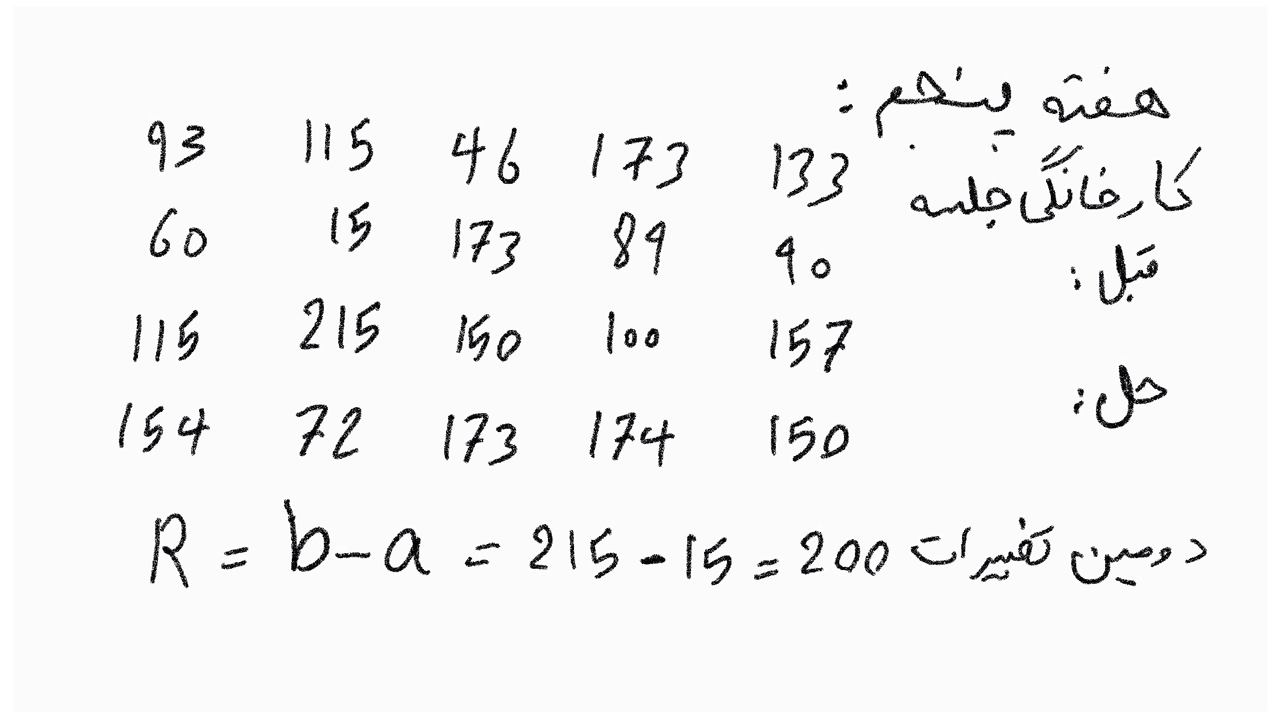 هفته پنجم :
کارخانگی جلسه
قبل :
حل :
93 115 46 173 133
60 15 173 89 90
115 215 150 100 157
154 72 173 174 150
R = b - a = 215 - 15 = 200 دومین تغییرات